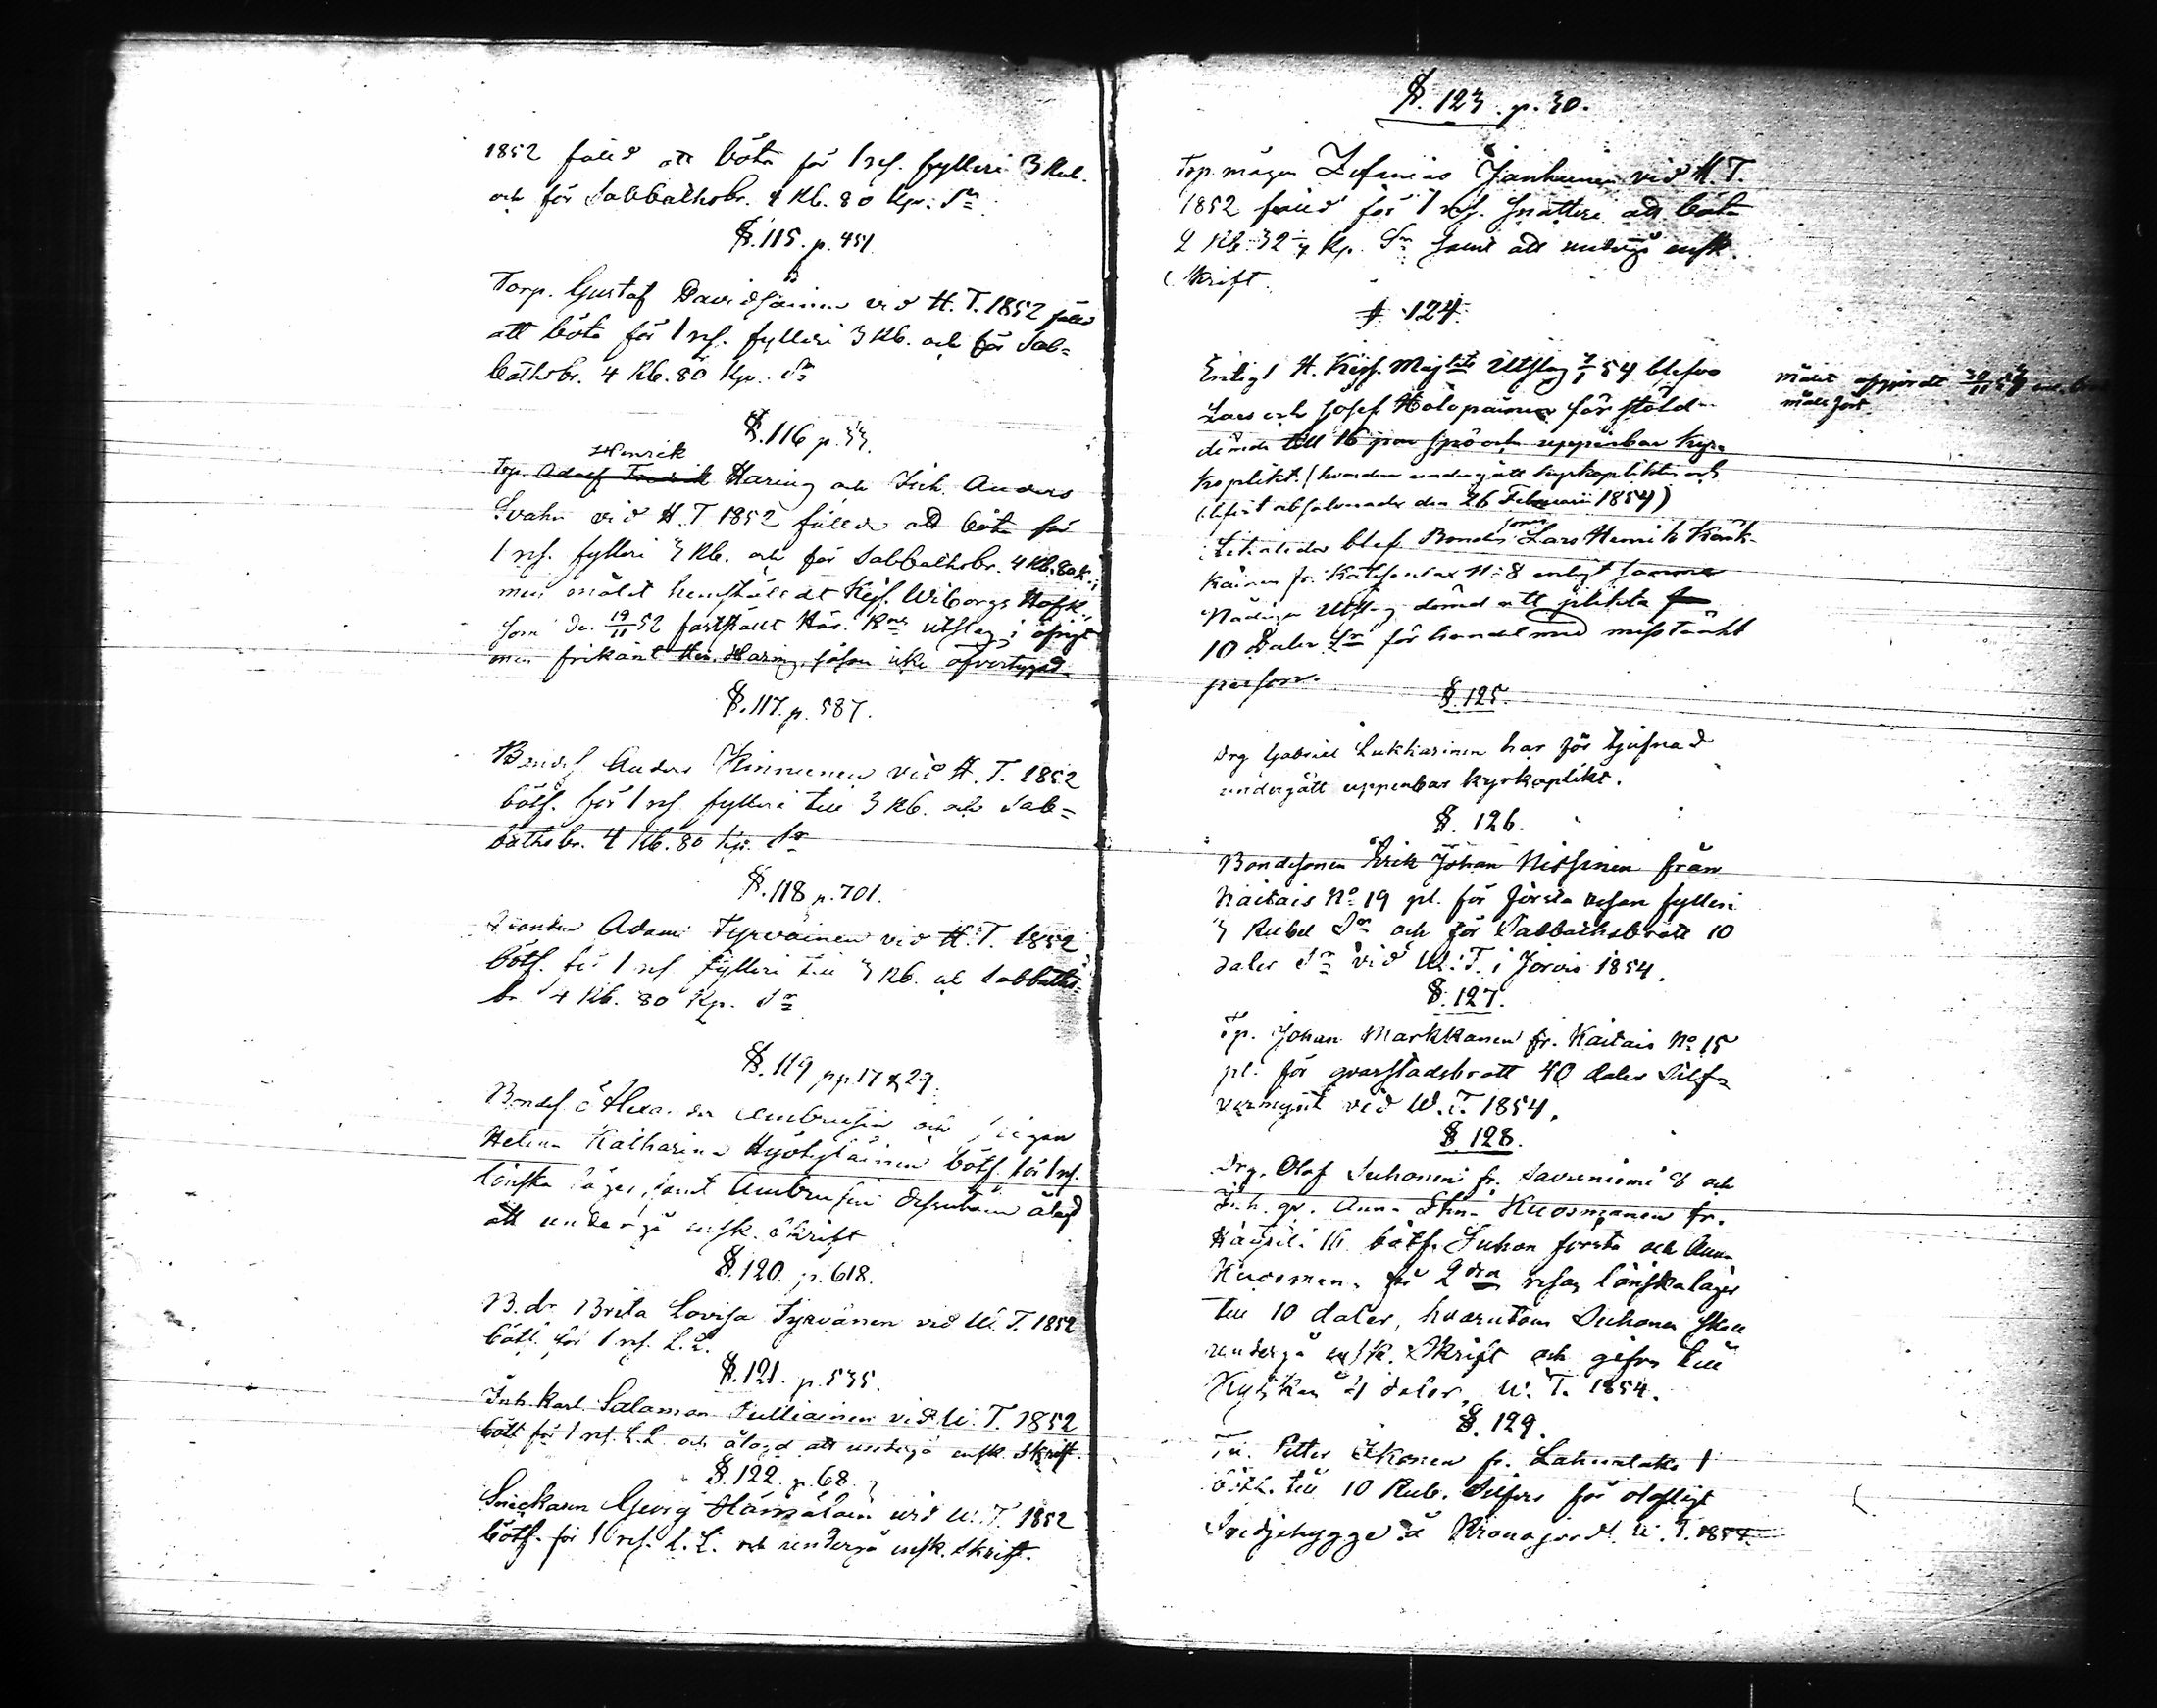 1852 fälld att böta för 1 res. fylleri 3 Rub.
och för Sabbathsbr. 4 Rb. 80 Kp. Sr
§. 115. p. 451
Torp. Gustaf Davidsainen vid H. T. 1852 fälld
att böta för 1 res. fylleri 3 Rb. och för Sab=
bathsbr. 4 Rb. 80 Kp. Sr
§. 116 p. 33.
Henrik
Torp. Adolf Fredrik Haring och Inh. Anders
Svahn vid H. T. 1852 fällde att böta för
1 res. fylleri 3 Rb. och för Sabbathsbr. 4 Rb. 80 K.;
men målet hemstäldt Kejs. Wiborgs Hofr.,
som den 19/11 52 fastställt Här. Rns utslag i öfrigt
men frikänt Hen. Haring, såsom icke öfvertygad.
§. 117. p. 587.
Bondes. Anders Kinnunen vid H. T. 1852
bötf. för 1 res. fylleri till 3 Rb. och Sab=
bathsbr. 4 Rb. 80 Kp. Sr
§. 118 p. 701.
Adam Tyrväinen vid H. T. 1852
bötf. för 1 res. fylleri till 3 Rb. och Sabbaths=
br. 4 Rb. 80 Kp. Sr
§. 119 pp. 17 & 29.
Bondes. Ambrusin och pigan
Helena Katharina Hyötyläinen bötf. för 1 res.
lönska läger, samt Ambrusin dessutom ålagd
att undergå ensk. skrift
§. 120. p. 618.
B. dr. Brita Lovisa Tyrvänen vid W. T. 1852
bötf. för 1 res. L. L.
§. 121. p. 535.
Inh. Karl Salamon Tulliainen vid W. T. 1852
bötf. för 1 res. L. L. och ålagd att undergå ensk. skrift.
§. 122. p. 68.
Snickaren Georg Hämäläin vid W. T. 1852
bötf. för 1 res. L. L. och undergå ensk. skrift.
§. 123. p. 30.
Torp. mågen Zefanias Janhunen vid H. T.
1852 fälld för 1 res. snatteri att böta
2 Rb. 32 Kp. Sr samt att undergå ensk.
skrift.
§. 124.
Enligt H. Kejs. Maj:ts Utslag 54 blefvo
Lars och Josef Holopainen för stöld
dömde till 16 par spö och uppenbar kyr=
koplikt. (hvardera undergått kyrkoplikten och
blifvit absolverade den 26 Februarii 1854)
sonen
blef Bonde Lars Henrik Kärk-
käinen fr. N:o 8 enligt samma
Nådiga Utslag dömd att plikta
10 Daler Sr för handel med misstänkt
person.
målet afgjordt 30/11 54
§. 125.
Drg Gabriel Lukkarinen har för tjufnad
undergått uppenbar kyrkoplikt.
§. 126.
Bondesonen Erik Johan Nissinen från
Kaitais No 19 pl. för första resan fylleri
3 Rubel Sr och för Sabbathsbrott 10
daler Sr vid W. T. i Jorois 1854.
§. 127.
Tp. Johan Markkanen fr. Kaitais No 15
pl. för qvarstadsbrott 40 daler Silf=
vermynt vid W. T. 1854.
§ 128.
Drg. Olof Juhonen fr. Savuniemi 8 och
Inh. qv. Anna Stina Kuosmanen fr.
bötf. Juhon första och Anna
Kuosmanen för 2dra resan lönskaläger
till 10 daler, hvarutom Juhonen skall
undergå ensk. skrift och gifva till
Kyrkan 4 daler, W. T. 1854.
§. 129.
Petter Ikonen fr. Lahnalaks 1
bötf. till 10 Rub. Silfver för olofligt
Svedjehygge å Kronojord W. T. 1854.